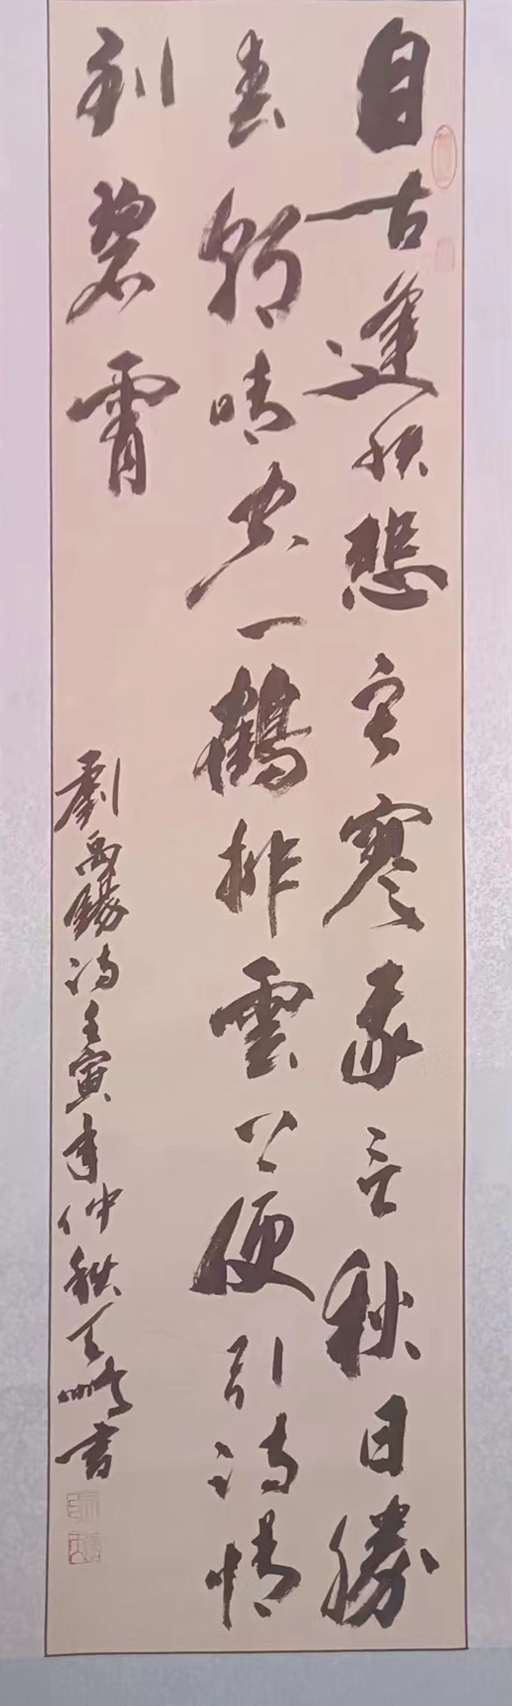 自古逢秋悲寂寥我言秋日勝
春朝晴空一鶴排雲上便引詩情
到碧霄
劉禹錫詩壬寅年仲秋天鵬書